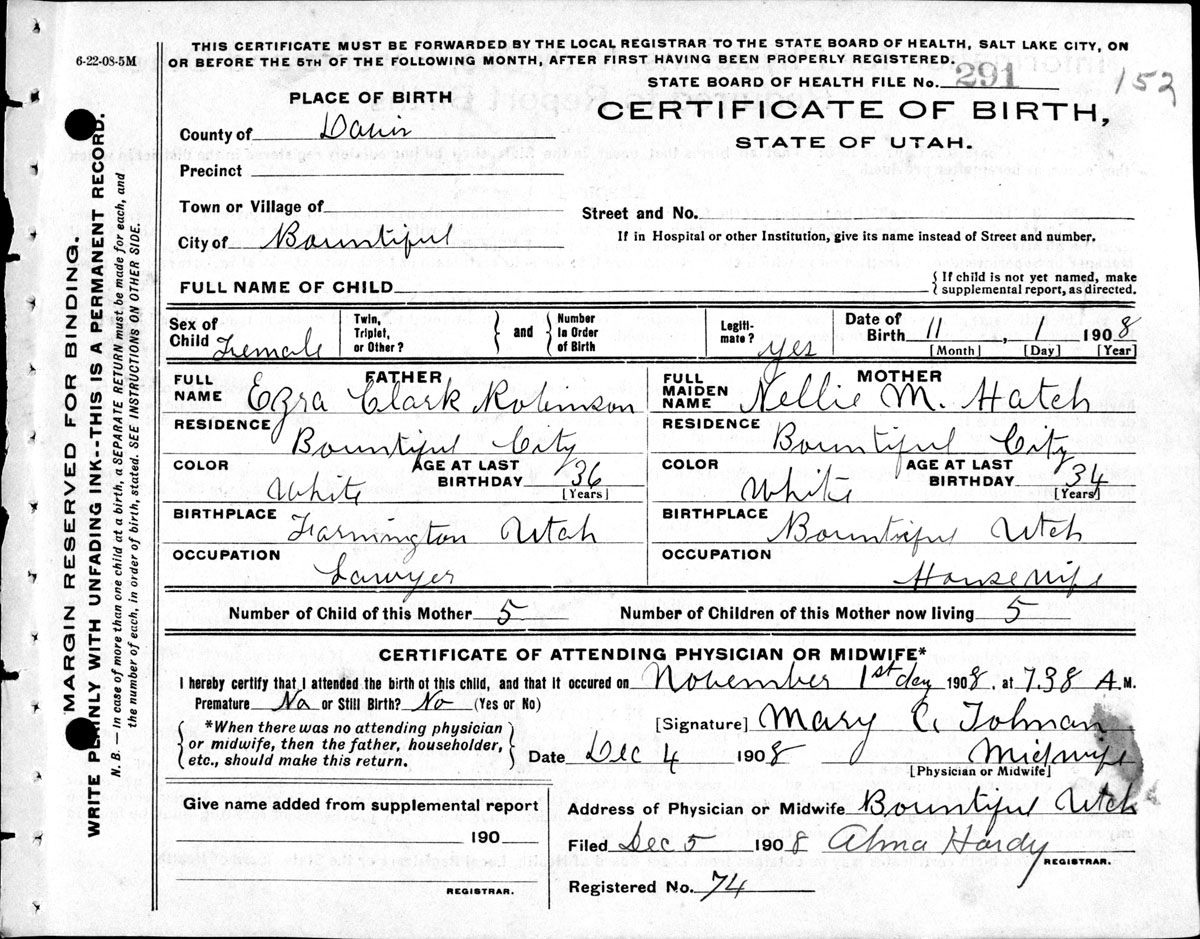 6-22-08-5M
THIS CERTIFICATE MUST BE FORWARDED BY THE LOCAL REGISTRAR TO THE STATE BOARD OF HEALTH, SALT LAKE CITY, ON
OR BEFORE THE 5TH OF THE FOLLOWING MONTH, AFTER FIRST HAVING BEEN PROPERLY REGISTERED.
STATE BOARD OF HEALTH FILE No. 291
152
PLACE OF BIRTH
CERTIFICATE OF BIRTH,
STATE OF UTAH.
County of Davis
Precinct
Town or Village of
Street and No.
City of Bountiful
If in Hospital or other Institution, give its name instead of Street and number.
FULL NAME OF CHILD
{ If child is not yet named, make
supplemental report, as directed.
Sex of Child Female
Twin, Triplet, or Other?
and
Number in Order of Birth
Legiti-mate? yes
Date of Birth 11, 1 1908
[Month] [Day] [Year]
FATHER
FULL NAME Ezra Clark Robinson
MOTHER
FULL MAIDEN NAME Nellie M. Hatch
RESIDENCE Bountiful City
RESIDENCE Bountiful City
COLOR White AGE AT LAST BIRTHDAY 36 [Years]
COLOR White AGE AT LAST BIRTHDAY 34 [Years]
BIRTHPLACE Farmington Utah
BIRTHPLACE Bountiful Utah
OCCUPATION Lawyer
OCCUPATION Housewife
Number of Child of this Mother 5 Number of Children of this Mother now living 5
CERTIFICATE OF ATTENDING PHYSICIAN OR MIDWIFE*
I hereby certify that I attended the birth of this child, and that it occured on November 1st day 1908, at 7.38 A.M.
Premature No or Still Birth? No (Yes or No)
*When there was no attending physician
or midwife, then the father, householder,
etc., should make this return.
[Signature] Mary C. Tolman
Date Dec 4 1908 Midwife
[Physician or Midwife]
Give name added from supplemental report
190
REGISTRAR.
Address of Physician or Midwife Bountiful Utah
Filed Dec 5 1908 Alma Hardy
REGISTRAR.
Registered No. 74
MARGIN RESERVED FOR BINDING.
WRITE PLAINLY WITH UNFADING INK--THIS IS A PERMANENT RECORD.
N. B. — In case of more than one child at a birth, a SEPARATE RETURN must be made for each, and
the number of each, in order of birth, stated. SEE INSTRUCTIONS ON OTHER SIDE.